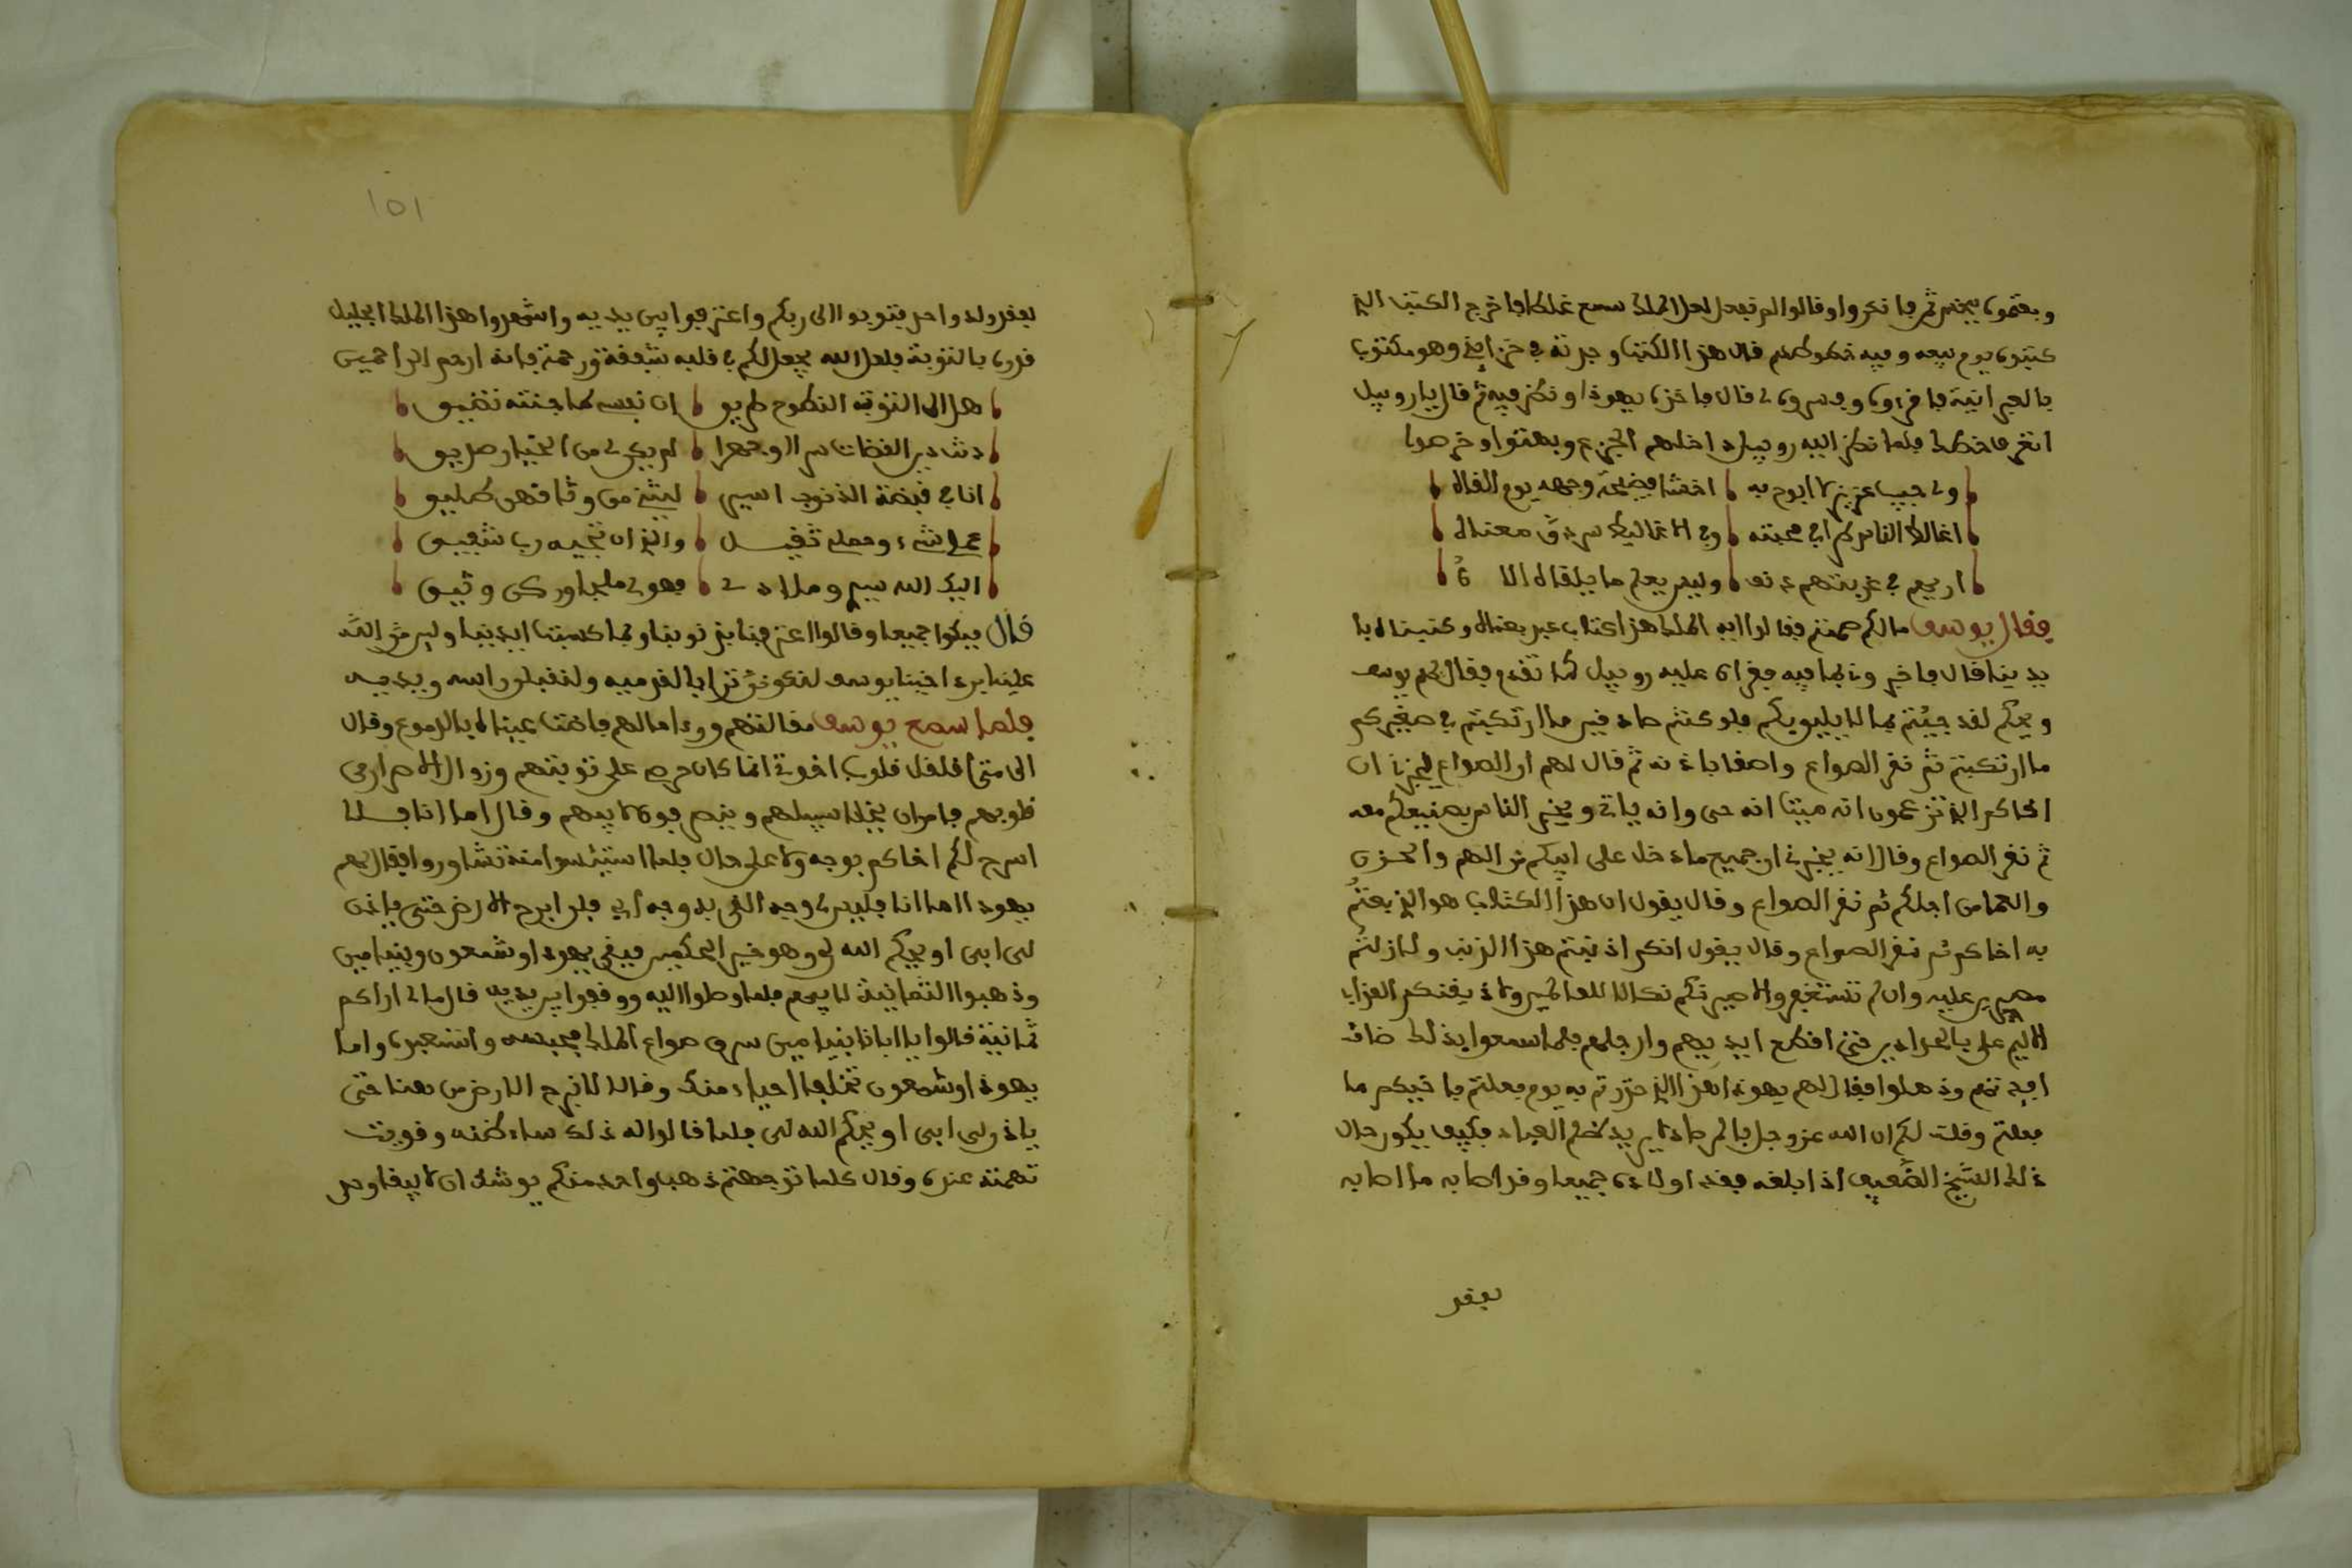 وبعتموه بثمن ثم فانكروا وقالوا لم نفعل لعل الملك سمع غلطا فاخرج الكتب الذي
كتبوه يوم بيعه وفيه خطوطهم قال هذا الكتب وجدته في خزايني وهو مكتوب
بالعبرانية فاقرءوه وفسروه لي قال فاخذه يهوذا ونظر فيه ثم قال يا روبيل
اتعرف خطك فلما نظر اليه روبيل داخلهم الجزع وبهتوا وخرصوا
ولي حبيب عزيز لا ابوح به اخشا فضيحة وجهه يوم القاه
اغالط الناس طرا في محبته وفي الاغاليط سر دق معناه
ارحم في غربتهم وليس يعلم ما يلقاه الا
فقال يوسف مالكم صمتم فقالوا ايه الملك هذا كتاب عبد بعناه وكتبناه با
يدينا قال فاخبروني بما فيه فقراه عليه روبيل كما تقدم فقال لهم يوسف
ويحكم لقد جيتم بما لا يليق بكم فلو كنتم صادقين ما ارتكبتم في صغيركم
ما ارتكبتم ثم نقر الصواع واصغا باذنه ثم قال لهم ان الصواع ليخبرني ان
اخاكم الذي تزعمون انه ميتا انه حي وانه ياتي ويخبر الناس بصنيعكم معه
ثم نقر الصواع وقال انه يخبرني ان جميع ما دخل على ابيكم من الهم والحزن
والعما من اجلكم ثم نقر الصواع وقال يقول ان هذا الكتاب هو الذي بعتم
به اخاكم ثم نقر الصواع وقال يقول انكم اذنبتم هذا الذنب ولا زلتم
مصرين عليه وان لم تستغفروا لاصيرنكم نكالا للعالمين ولاذيقنكم العذاب
الاليم علي بالحدادين حتى اقطع ايديهم وارجلهم فلما سمعوا بذلك ضاق
افيدتهم وذهلوا فقال لهم يهوذا هذا الذي حذرتم به يوم فعلتم باخيكم ما
فعلتم وقلت لكم ان الله عز وجل بالمرصاد لا يريد ظلم العباد فكيف يكون حال
ذلك الشيخ الضعيف اذا بلغه فقد اولاده جميعا وقد اصابه ما اصابه
بفقد
١٥١
بفقد ولد واحد فتوبوا الى ربكم واعترفوا بين يديه واشعروا هذا الملك الجليل
قدره بالتوبة فلعل الله يجعل لكم في قلبه شفقة ورحمة فانه ارحم الراحمين
هل الى التوبة النصوح طريق ان نفسي لما جنته تضيق
من الخيار صديق
انا في قبضة الذنوب اسير ليتني من وثاقهن طليق
عملي شيء وحملي ثقيل والذي ان تنجيه رب شفيق
اليك الله سيدي وملاذي فهو لي ملجا وركن وثيق
قال فبكوا جميعا وقالوا اعترفنا بذنوبنا وبما كسبت ايدينا ولين من الله
علينا برد اخينا يوسف لنكونن ترابا لقدميه ولنقبلن راسه ويديه
فلما سمع يوسف مقالتهم ورءا ما لهم فاضت عيناه بالدموع وقال
الى متى اقلقل قلوب اخوتي انما كان حرصي على توبتهم وزوال الاصرار من
قلوبهم فامر ان يخلا سبيلهم وينصرفوا لابيهم وقال اما انا فلا
اسرح لكم اخاكم بوجه ولا على حال فلما استيئسوا منه تشاوروا فقال لهم
يهوذا اما انا فليس لي وجه القى به وجه ابي فلن ابرح الارض حتى ياذن
لي ابي او يحكم الله لي وهو خير الحكمين فبقي يهوذا وشمعون وبنيامين
وذهبوا الثمانية لابيهم فلما وصلوا اليه ووقفوا بين يديه قال مالي اراكم
ثمانية قالوا يا ابانا بنيامين سرق صواع الملك فحبسه واستعبده واما
يهوذا وشمعون تخلفا احياء منك وقالا لا نبرح الارض من هنا حتى
ياذن لي ابي او يحكم الله لي فلما قالوا له ذلك ساء ظنه وقويت
تهمته عنده وقال كلما توجهتم ذهب واحد منكم يوشك ان لا يبقا وحد